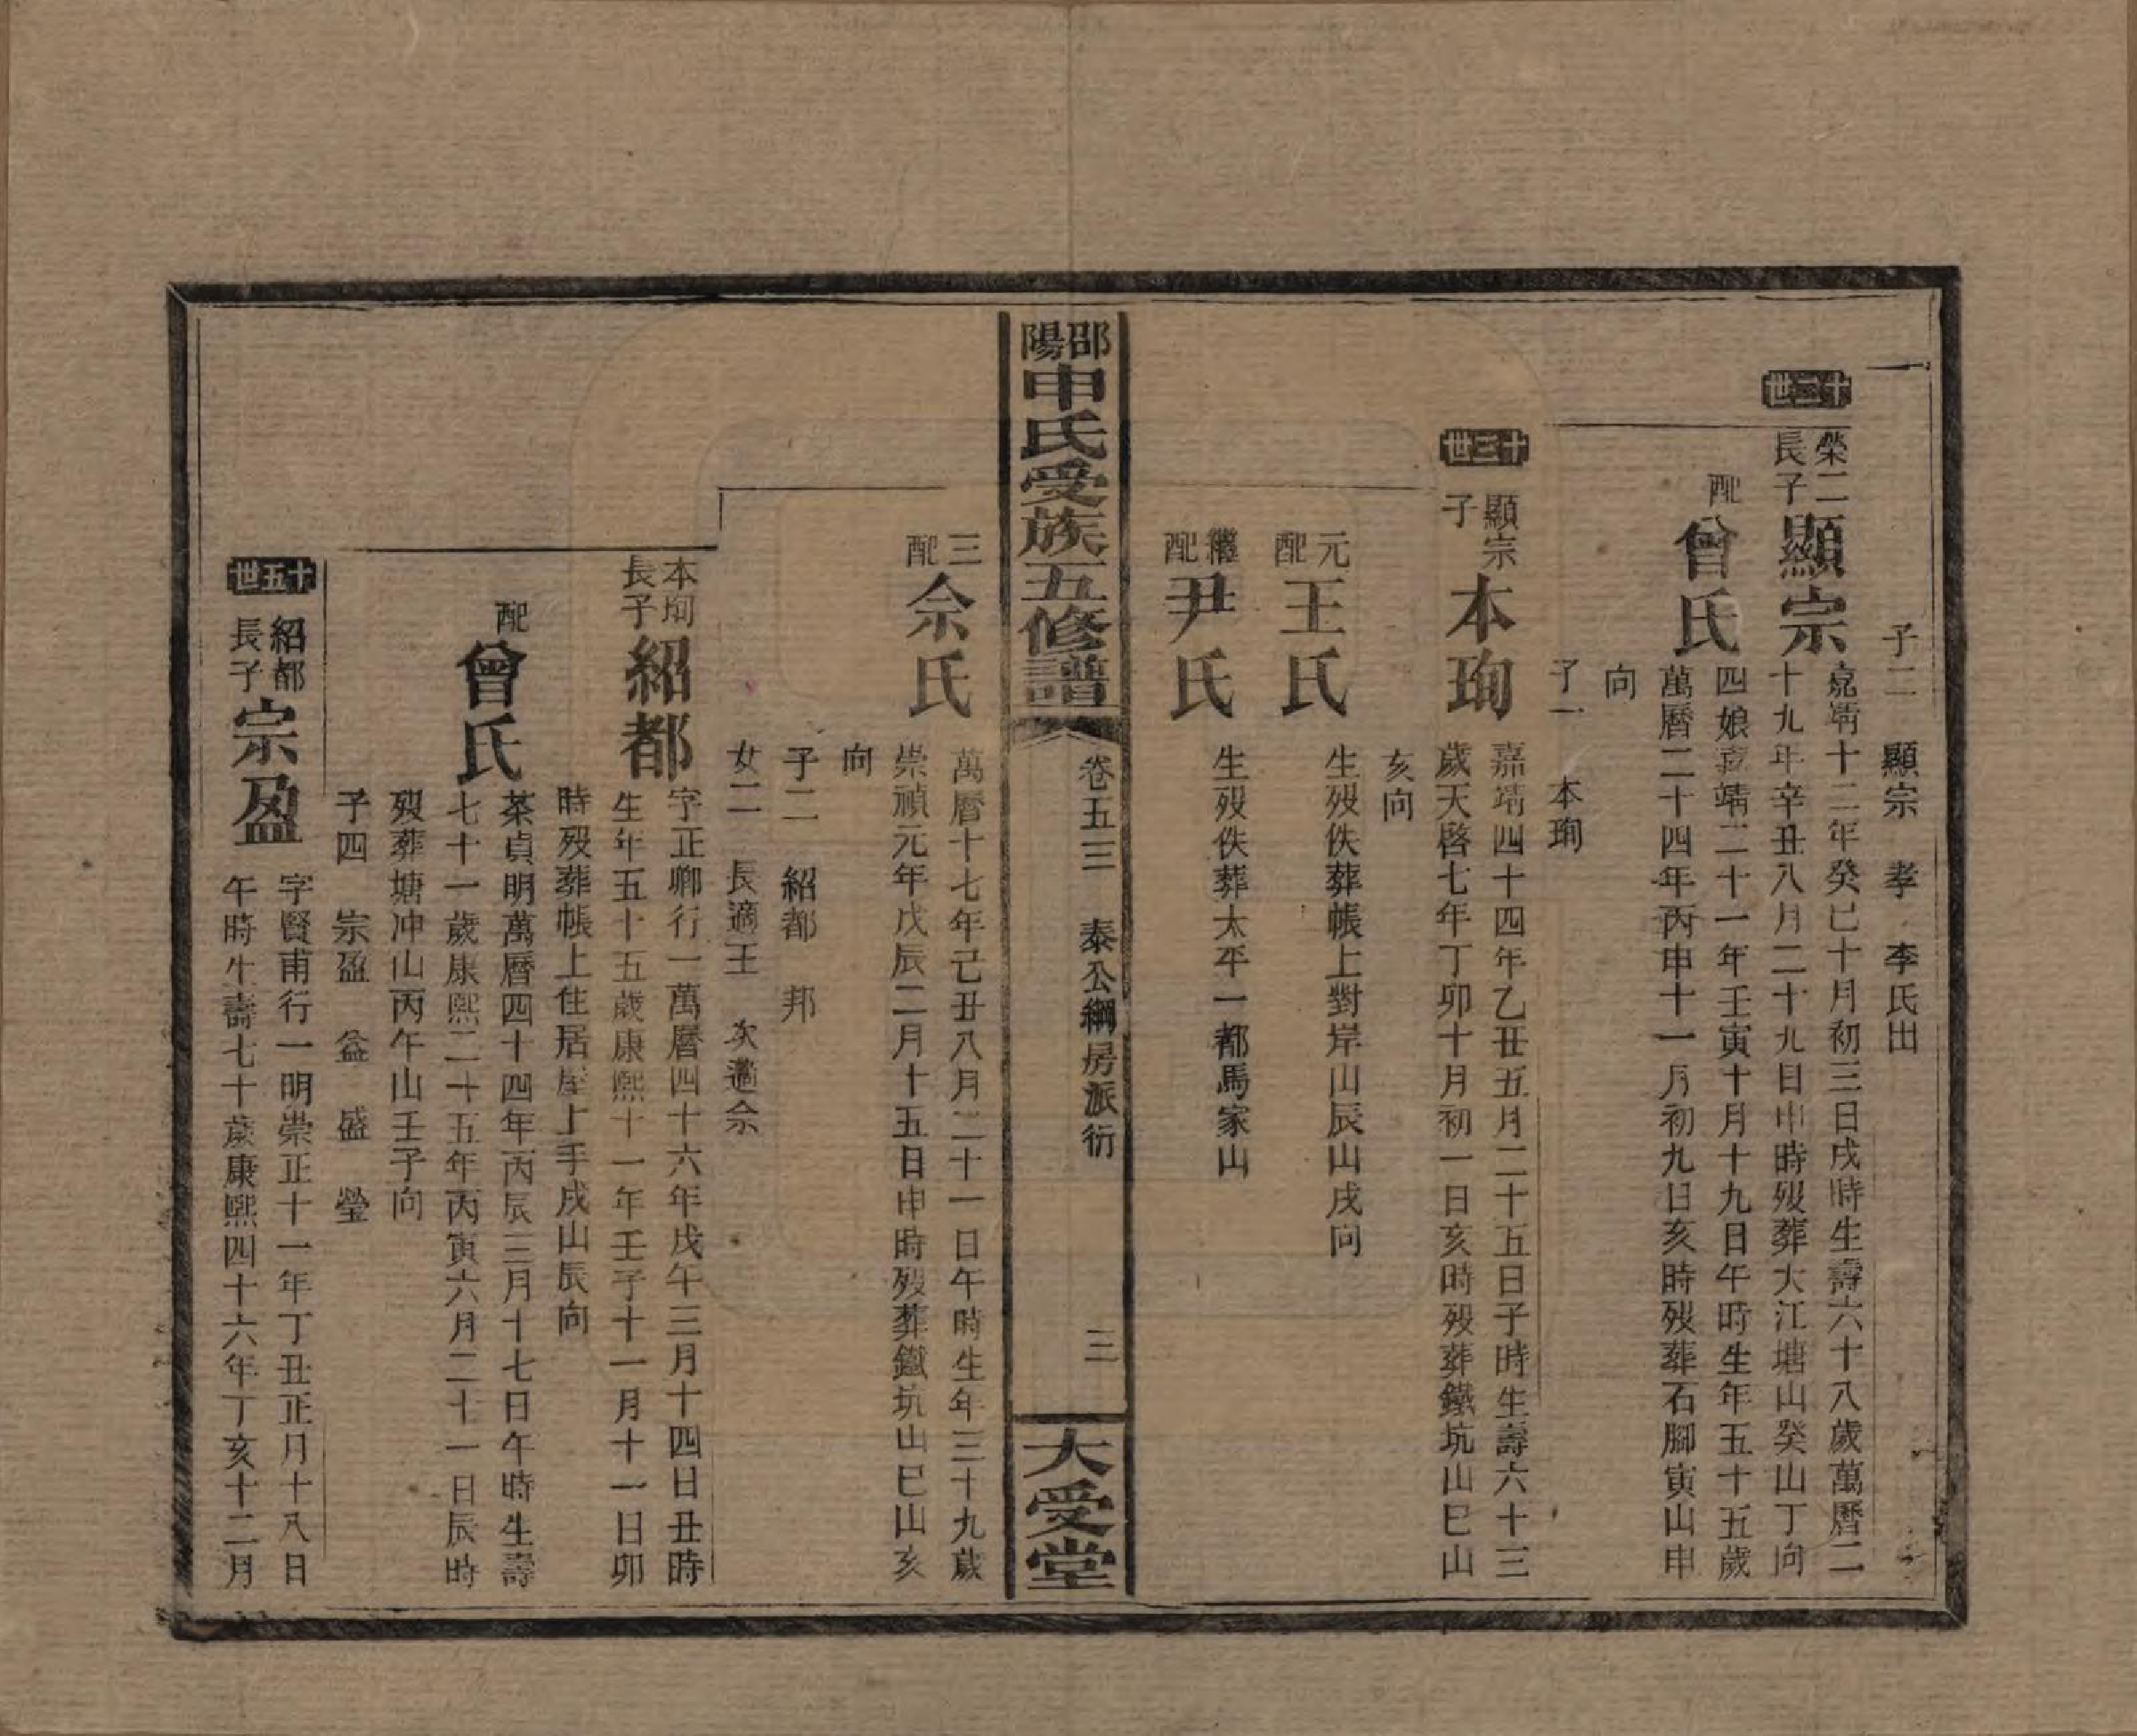 子二　顯宗　孝　李氏出
十二世
榮二長子
顯宗
嘉靖十二年癸巳十月初三日戌時生壽六十八歲萬曆二
十九年辛丑八月二十九日申時歿葬大江塘山癸山丁向
配
曾氏
四娘嘉靖二十一年壬寅十月十九日午時生年五十五歲
萬曆二十四年丙申十一月初九日亥時歿葬石腳寅山申
向
子一　本珣
十三世
顯宗子
本珣
嘉靖四十四年乙丑五月二十五日子時生壽六十三
歲天啓七年丁卯十月初一日亥時歿葬鐵坑山巳山
亥向
元配
王氏
生歿佚葬帳上對岸山辰山戌向
繼配
尹氏
生歿佚葬太平一都馬家山
邵陽申氏受族五修譜
卷五三　泰公綱房派衍
三
大受堂
三配
佘氏
萬曆十七年己丑八月二十一日午時生年三十九歲
崇禎元年戊辰二月十五日申時歿葬鐵坑山巳山亥
向
子二　紹都　邦
女二　長適王　次適佘
本珣長子
紹都
字正卿行一萬曆四十六年戊午三月十四日丑時
生年五十五歲康熙十一年壬子十一月十一日卯
時歿葬帳上住居屋上手戌山辰向
配
曾氏
茶貞明萬曆四十四年丙辰三月十七日午時生壽
七十一歲康熙二十五年丙寅六月二十一日辰時
歿葬塘冲山丙午山壬子向
子四　宗盈　益　盛　瑩
十五世
紹都長子
宗盈
字賢甫行一明崇正十一年丁丑正月十八日
午時生壽七十歲康熙四十六年丁亥十二月